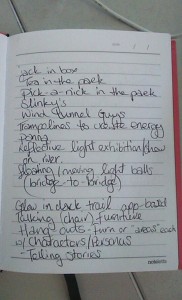 Jack in box
Tea in the park
Pick-a-nick in the park
Slinky's
Wind Tunnel Guys
Trampolines to create energy
Reflective light exhibition/show
on river.
Floating/moving light balls
(bridge-to-bridge)
Glow in dark trail app-based
Talking (chair) furniture
Hang outs - turn or "areas" each
w/ Characters/Personas
- Telling stories